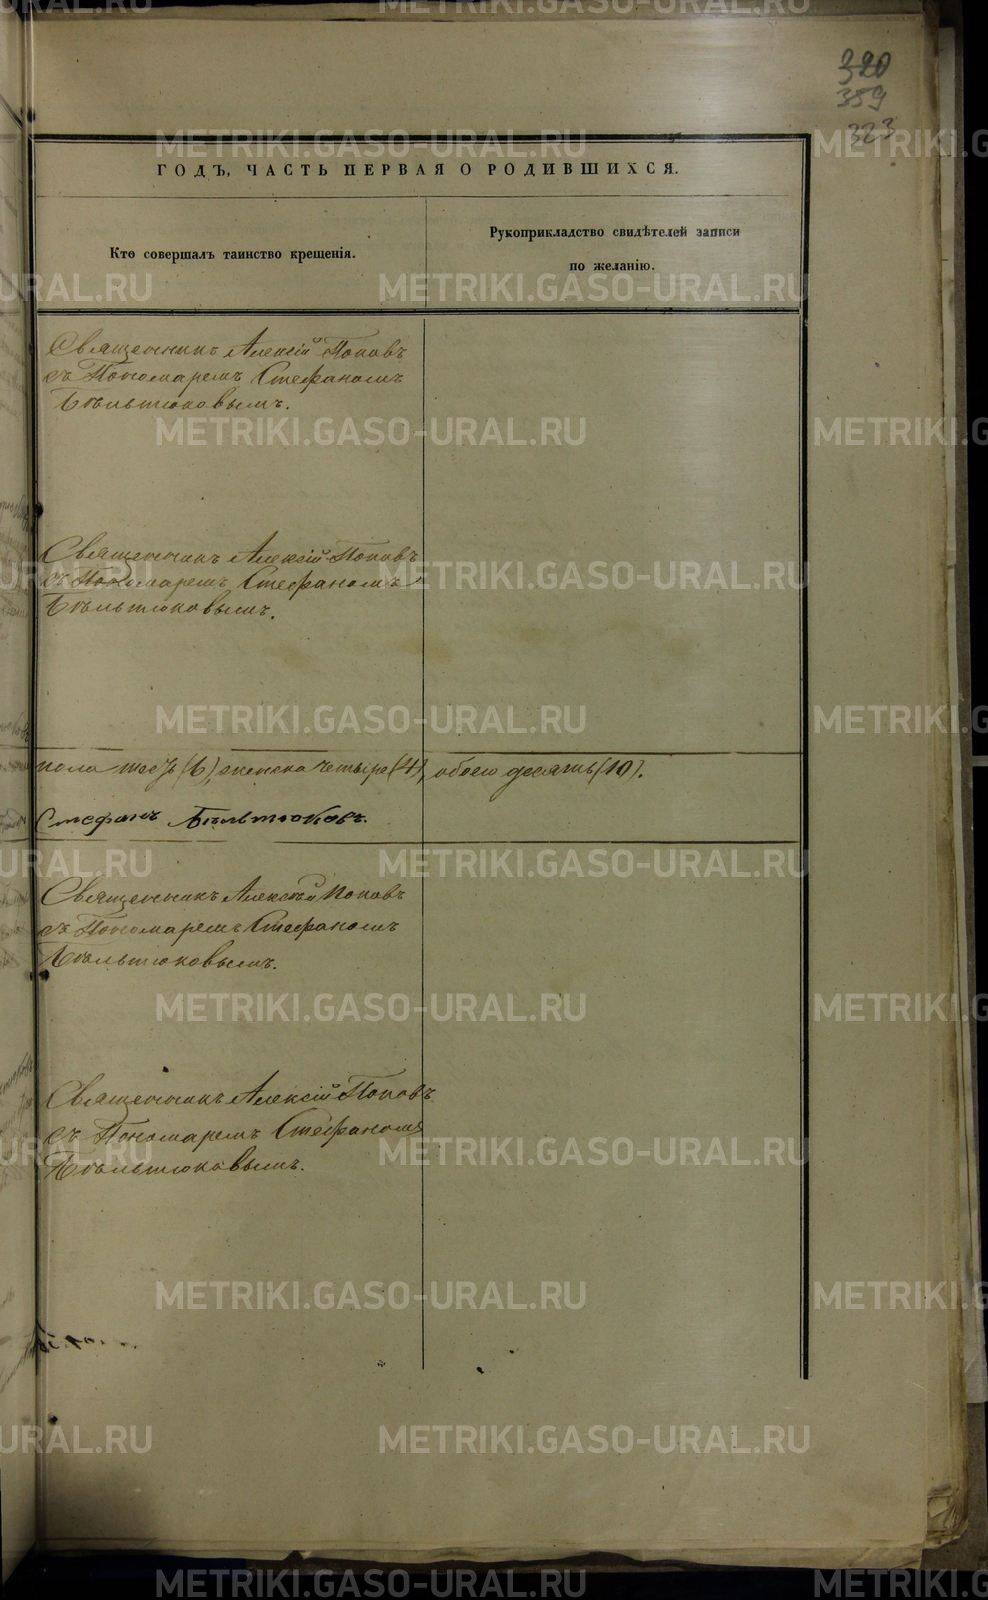 320
359
323
ГОДЪ, ЧАСТЬ ПЕРВАЯ О РОДИВШИХСЯ.
Кто совершалъ таинство крещенія.
Рукоприкладство свидѣтелей записи
по желанію.
Священникъ Алексій Поповъ
съ Пономаремъ Стефаномъ
Бѣльтюковымъ.
Священникъ Алексій Поповъ
съ Пономаремъ Стефаномъ
Бѣльтюковымъ.
пола шесть (6), женска четыре (4), обоего десять (10).
Стефанъ Бѣльтюковъ.
Священникъ Алексѣй Поповъ
съ Пономаремъ Стефаномъ
Бѣльтюковымъ.
Священникъ Алексій Поповъ
съ Пономаремъ Стефаномъ
Бѣльтюковымъ.
METRIKI.GASO-URAL.RU